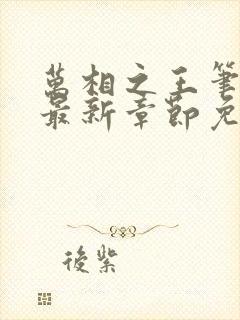 萬相之王筆
最新章節免
後紫